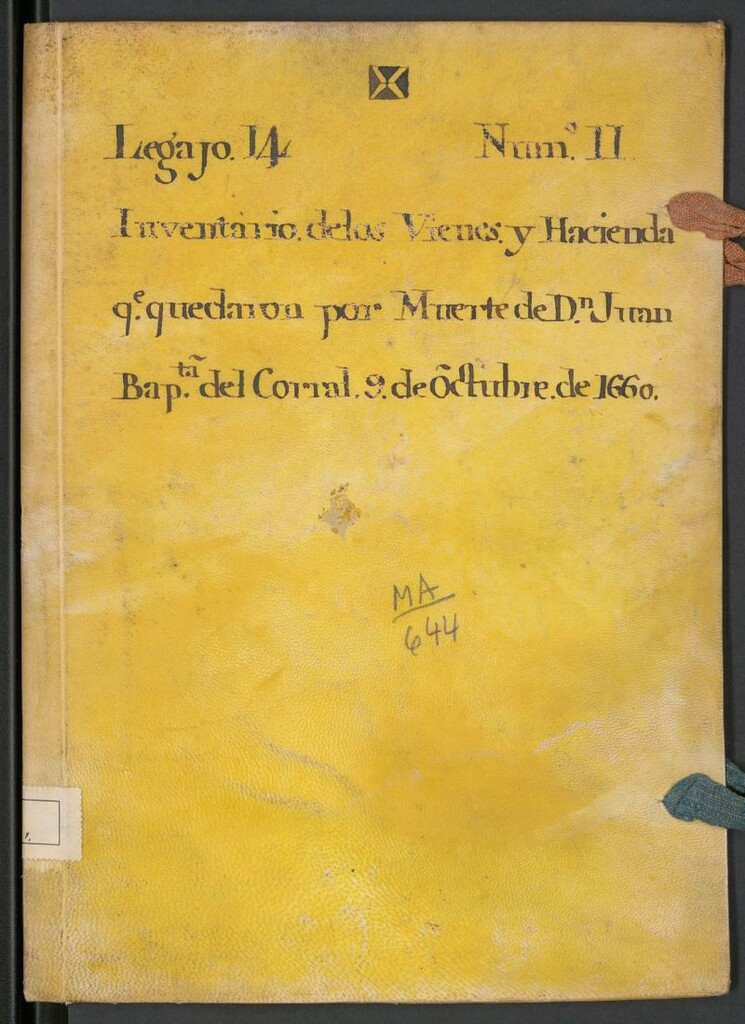 Legajo. 14 Num.º 11
Inventario. delos Vienes. y Hacienda
q.e quedaron por Muerte de D.n Juan
Bap.ta del Corral. 9. de Octubre. de 1660.
MA
644